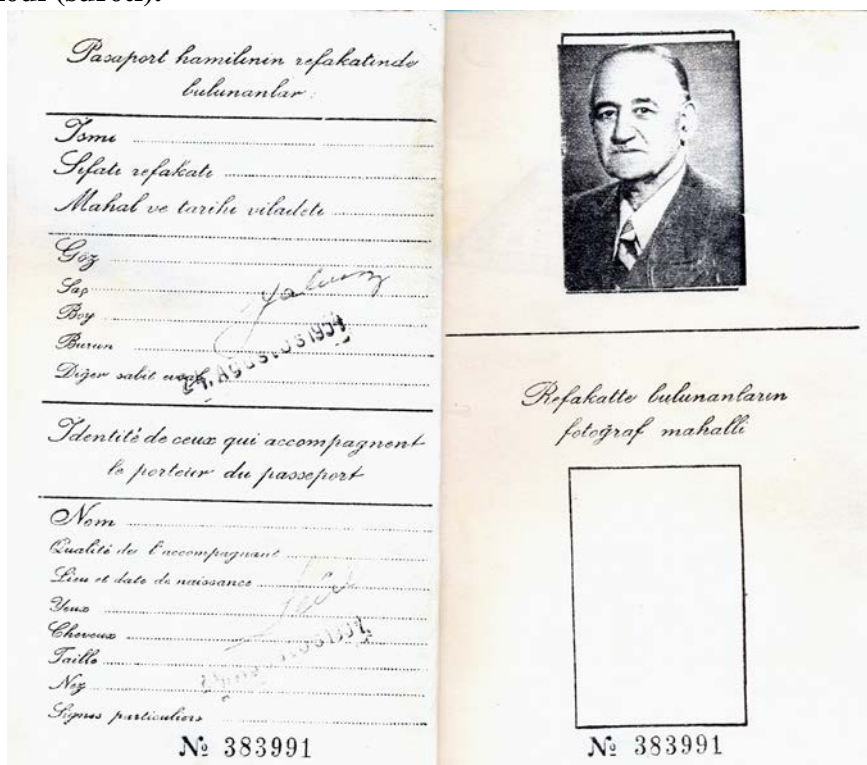 Pasaport hamilinin refakatinde
bulunanlar :
İsmi
Sıfatı refakati
Mahal ve tarihi viladeti
Göz
Saç
Boy
Burun
Diğer sabit
Yalnız
24. AĞUSTOS 1954
Identité de ceux qui accompagnent
le porteur du passeport
Nom
Qualité de l'accompagnant
Lieu et date de naissance
Yeux
Cheveux
Taille
Nez
Signes particuliers
Seul
№ 383991
Refakatte bulunanların
fotoğraf mahalli
№ 383991